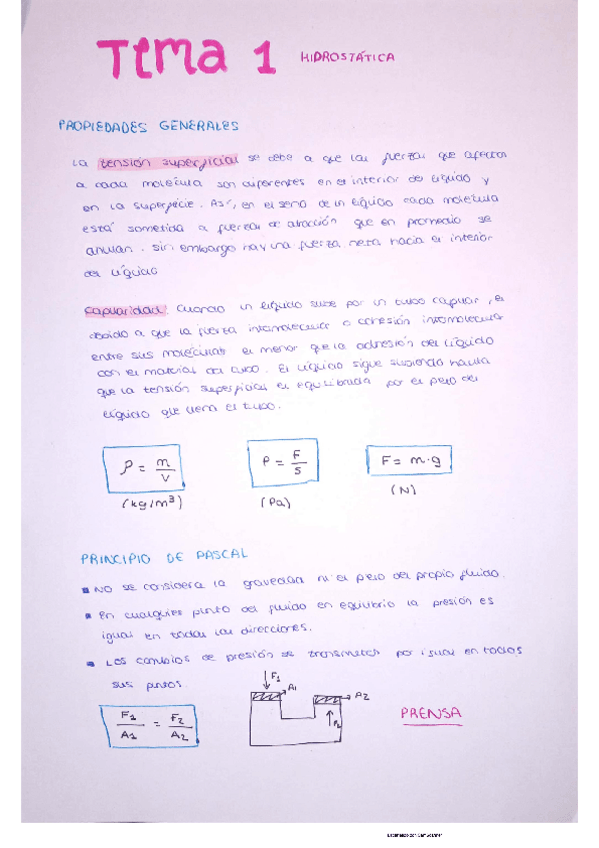 Tema 1 HIDROSTÁTICA
PROPIEDADES GENERALES
La tensión superficial se debe a que las fuerzas que afectan
a cada molécula son diferentes en el interior del líquido y
en la superficie. Así, en el seno de un líquido cada molécula
está sometida a fuerzas de atracción que en promedio se
anulan. Sin embargo hay una fuerza neta hacia el interior
del líquido
Capilaridad. Cuando un líquido sube por un tubo capilar, es
debido a que la fuerza intermolecular o cohesión intermolecular
entre sus moléculas es menor que la adhesión del líquido
con el material del tubo. El líquido sigue subiendo hasta
que la tensión superficial es equilibrada por el peso del
líquido que llena el tubo.
ρ = m/V
P = F/S
F = m·g
(kg/m³)
(Pa)
(N)
PRINCIPIO DE PASCAL
NO se considera la gravedad ni el peso del propio fluido.
En cualquier punto del fluido en equilibrio la presión es
igual en todas las direcciones.
Los cambios de presión se transmiten por igual en todos
sus puntos.
F1/A1 = F2/A2
F1
A1
A2
F2
PRENSA